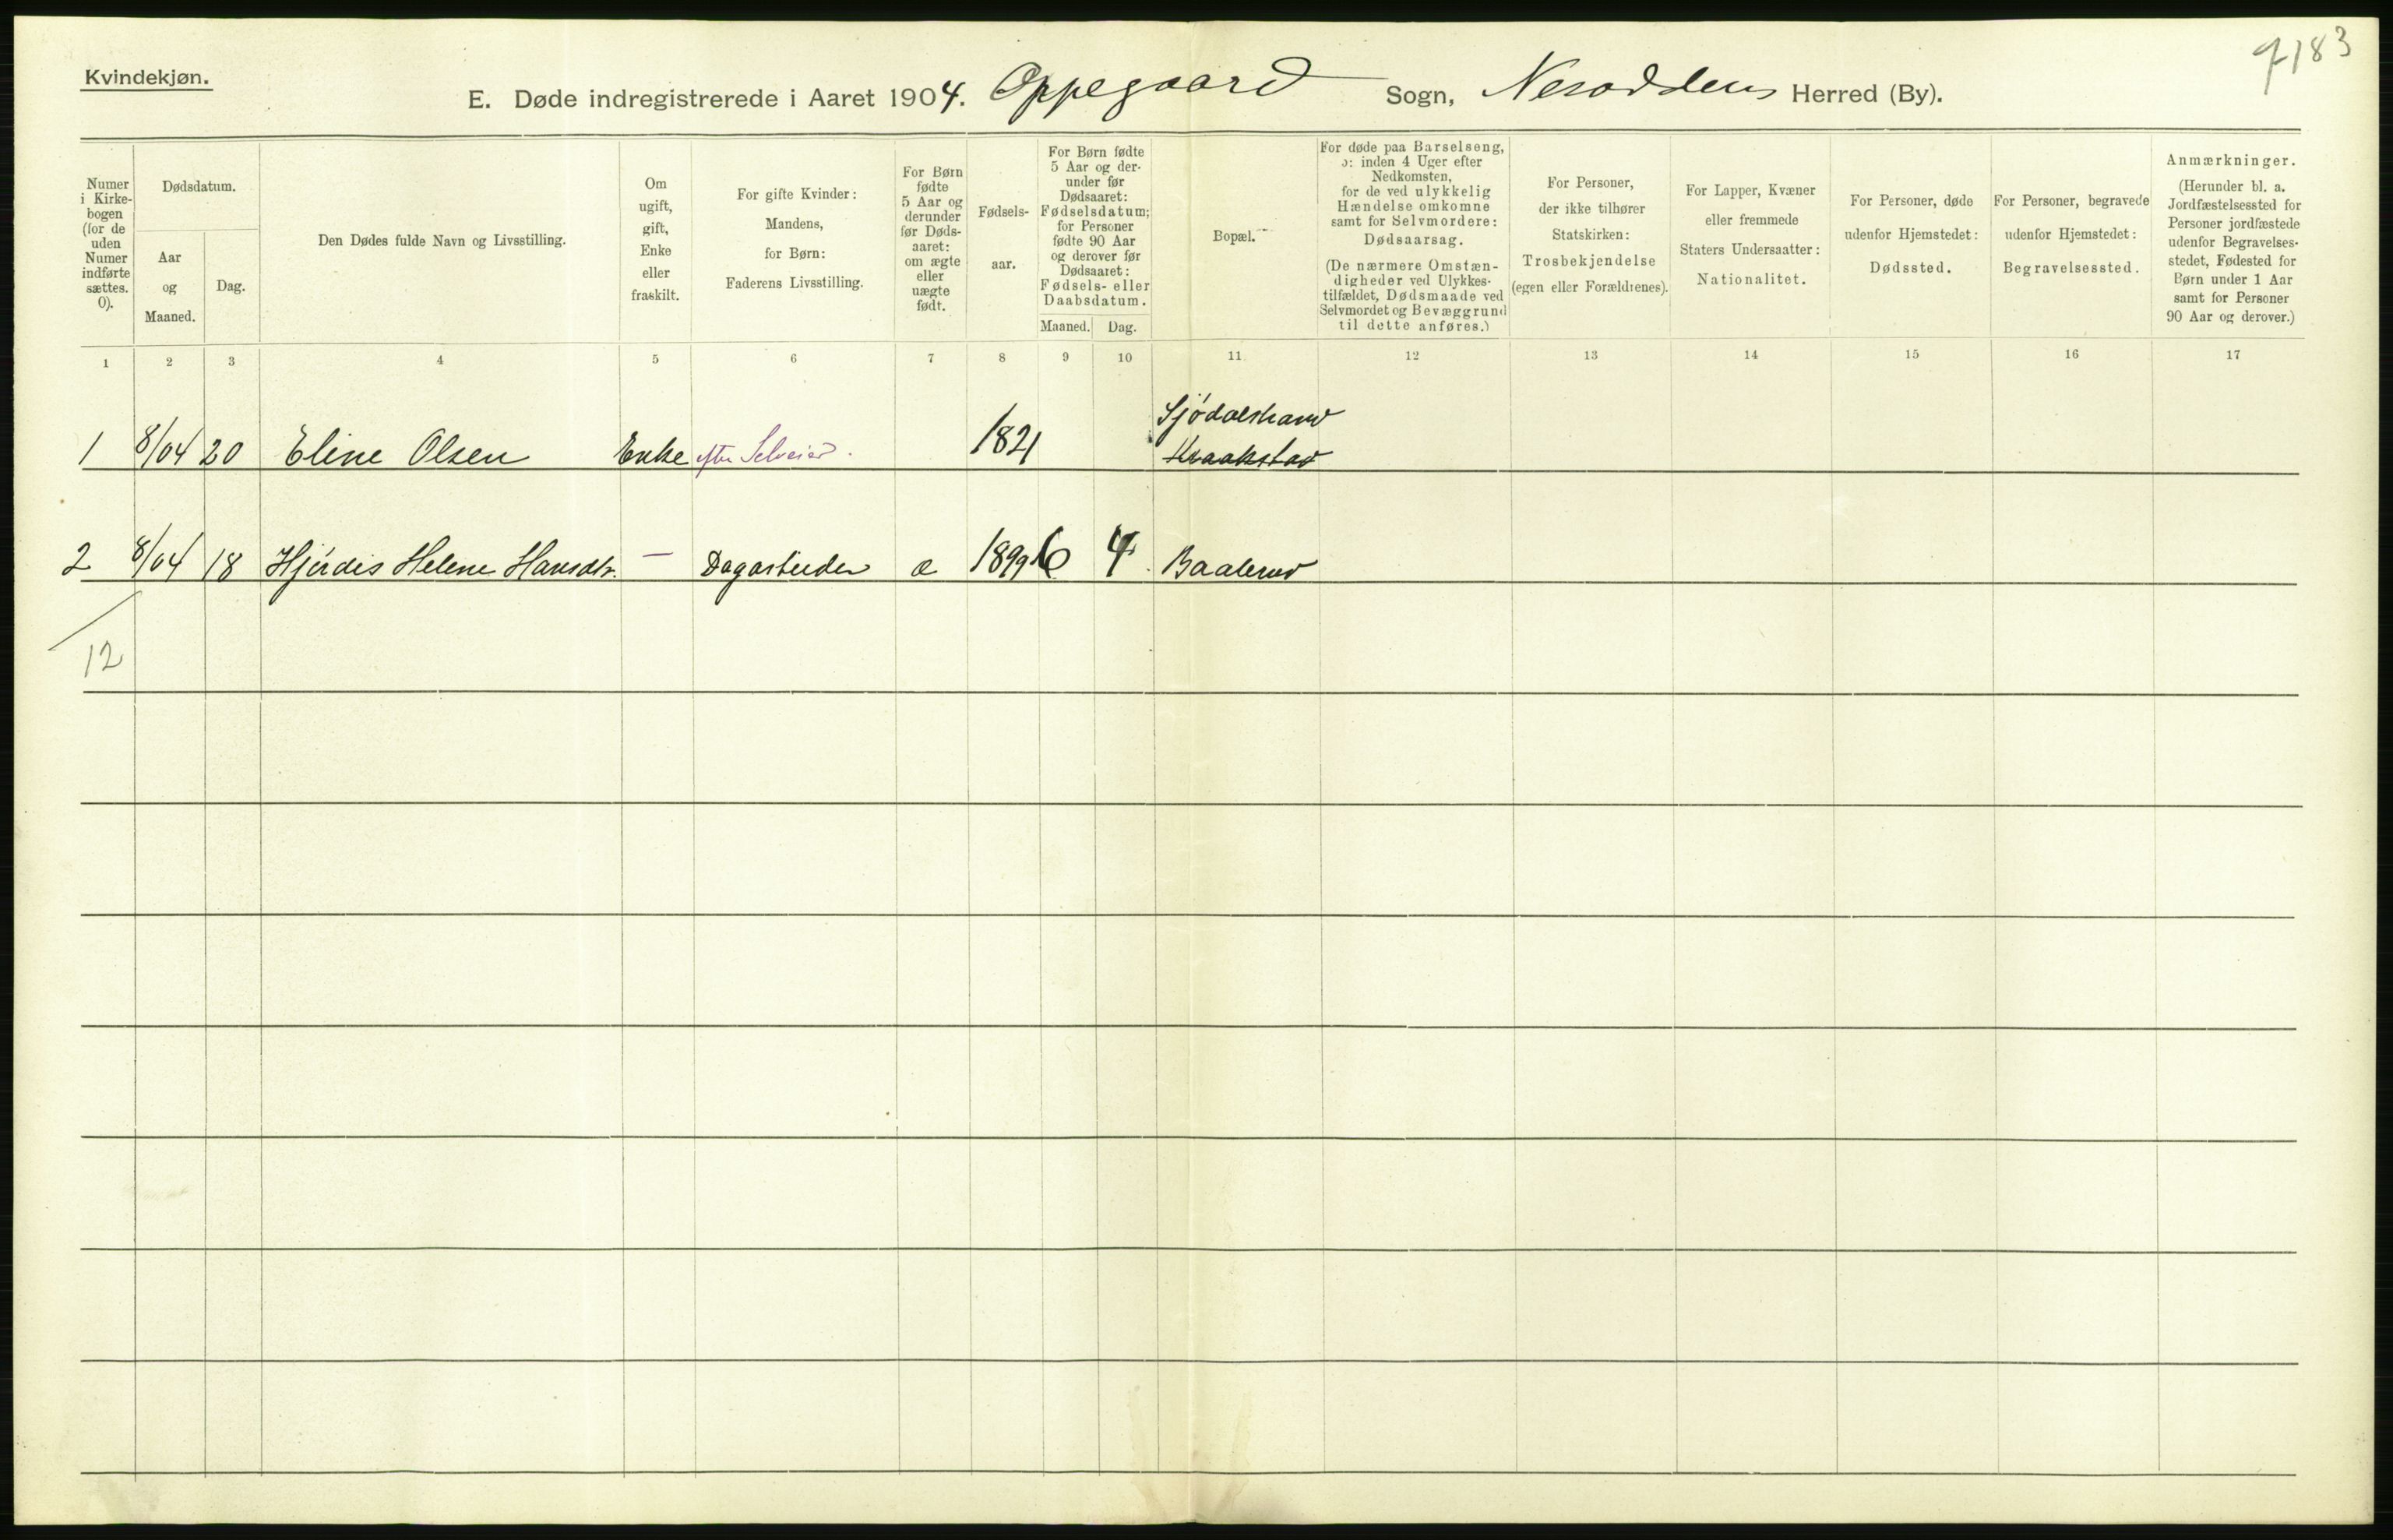 Kvindekjøn.
183
E. Døde indregistrerede i Aaret 1904. Oppegaard Sogn, Nesoddens Herred (By).
Numer i Kirke-bogen (for de uden Numer indførte sættes. 0).
Dødsdatum.
Aar og Maaned.
Dag.
Den Dødes fulde Navn og Livsstilling.
Om ugift, gift, Enke eller fraskilt.
For gifte Kvinder: Mandens, for Børn: Faderens Livsstilling.
For Børn fødte 5 Aar og derunder før Døds-aaret: om ægte eller uægte født.
Fødsels-aar.
For Børn fødte 5 Aar og der-under før Dødsaaret: Fødselsdatum; for Personer fødte 90 Aar og derover før Dødsaaret: Fødsels- eller Daabsdatum.
Maaned. Dag.
Bopæl.
For døde paa Barselseng, ɔ: inden 4 Uger efter Nedkomsten, for de ved ulykkelig Hændelse omkomne samt for Selvmordere: Dødsaarsag. (De nærmere Omstæn-digheder ved Ulykkes-tilfældet, Dødsmaade ved Selvmordet og Bevæggrund til dette anføres.)
For Personer, der ikke tilhører Statskirken: Trosbekjendelse (egen eller Forældrenes).
For Lapper, Kvæner eller fremmede Staters Undersaatter: Nationalitet.
For Personer, døde udenfor Hjemstedet: Dødssted.
For Personer, begravede udenfor Hjemstedet: Begravelsessted.
Anmærkninger. (Herunder bl. a. Jordfæstelsessted for Personer jordfæstede udenfor Begravelses-stedet, Fødested for Børn under 1 Aar samt for Personer 90 Aar og derover.)
1 2 3 4 5 6 7 8 9 10 11 12 13 14 15 16 17
Sjödalstrand
1 8/04 20 Eline Olsen Enke efter Selveier. 1821 Kraakstad
2 8/04 18 Hjördis Helene Hansdtr. — Dagarbeider æ 1899 6 4 Baalerud
12